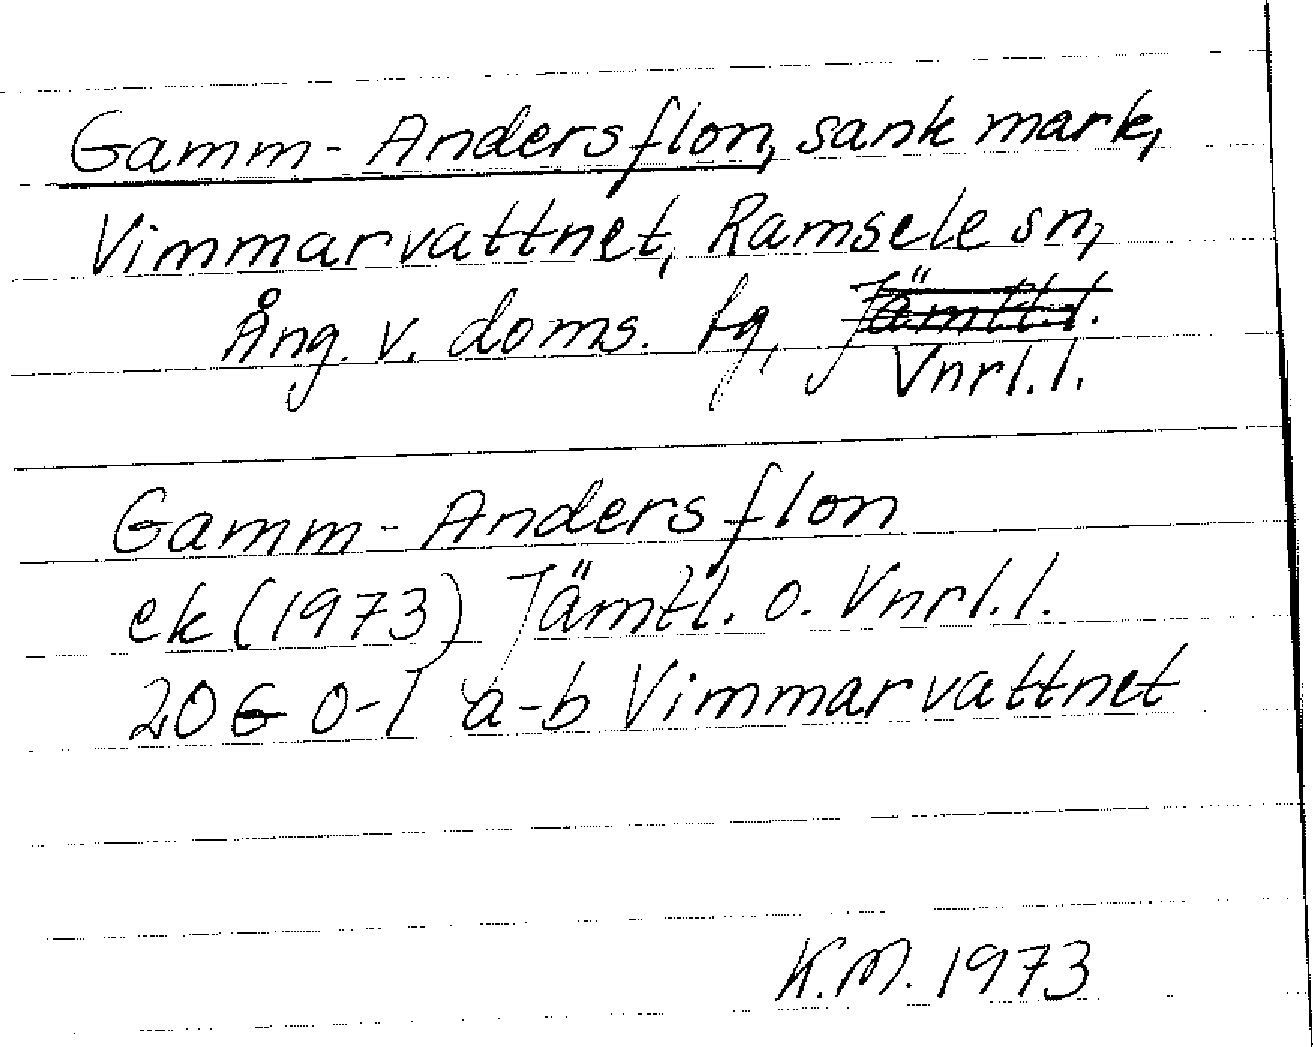 Gamm-Andersflon, sank mark,
Vimmarvattnet, Ramsele sn,
Ång. v. doms. tg, Jämtl.l.
Vnrl.l.
Gamm-Andersflon
ek (1973) Jämtl. o. Vnrl.l.
20G 0-1 a-b Vimmarvattnet
K.M. 1973